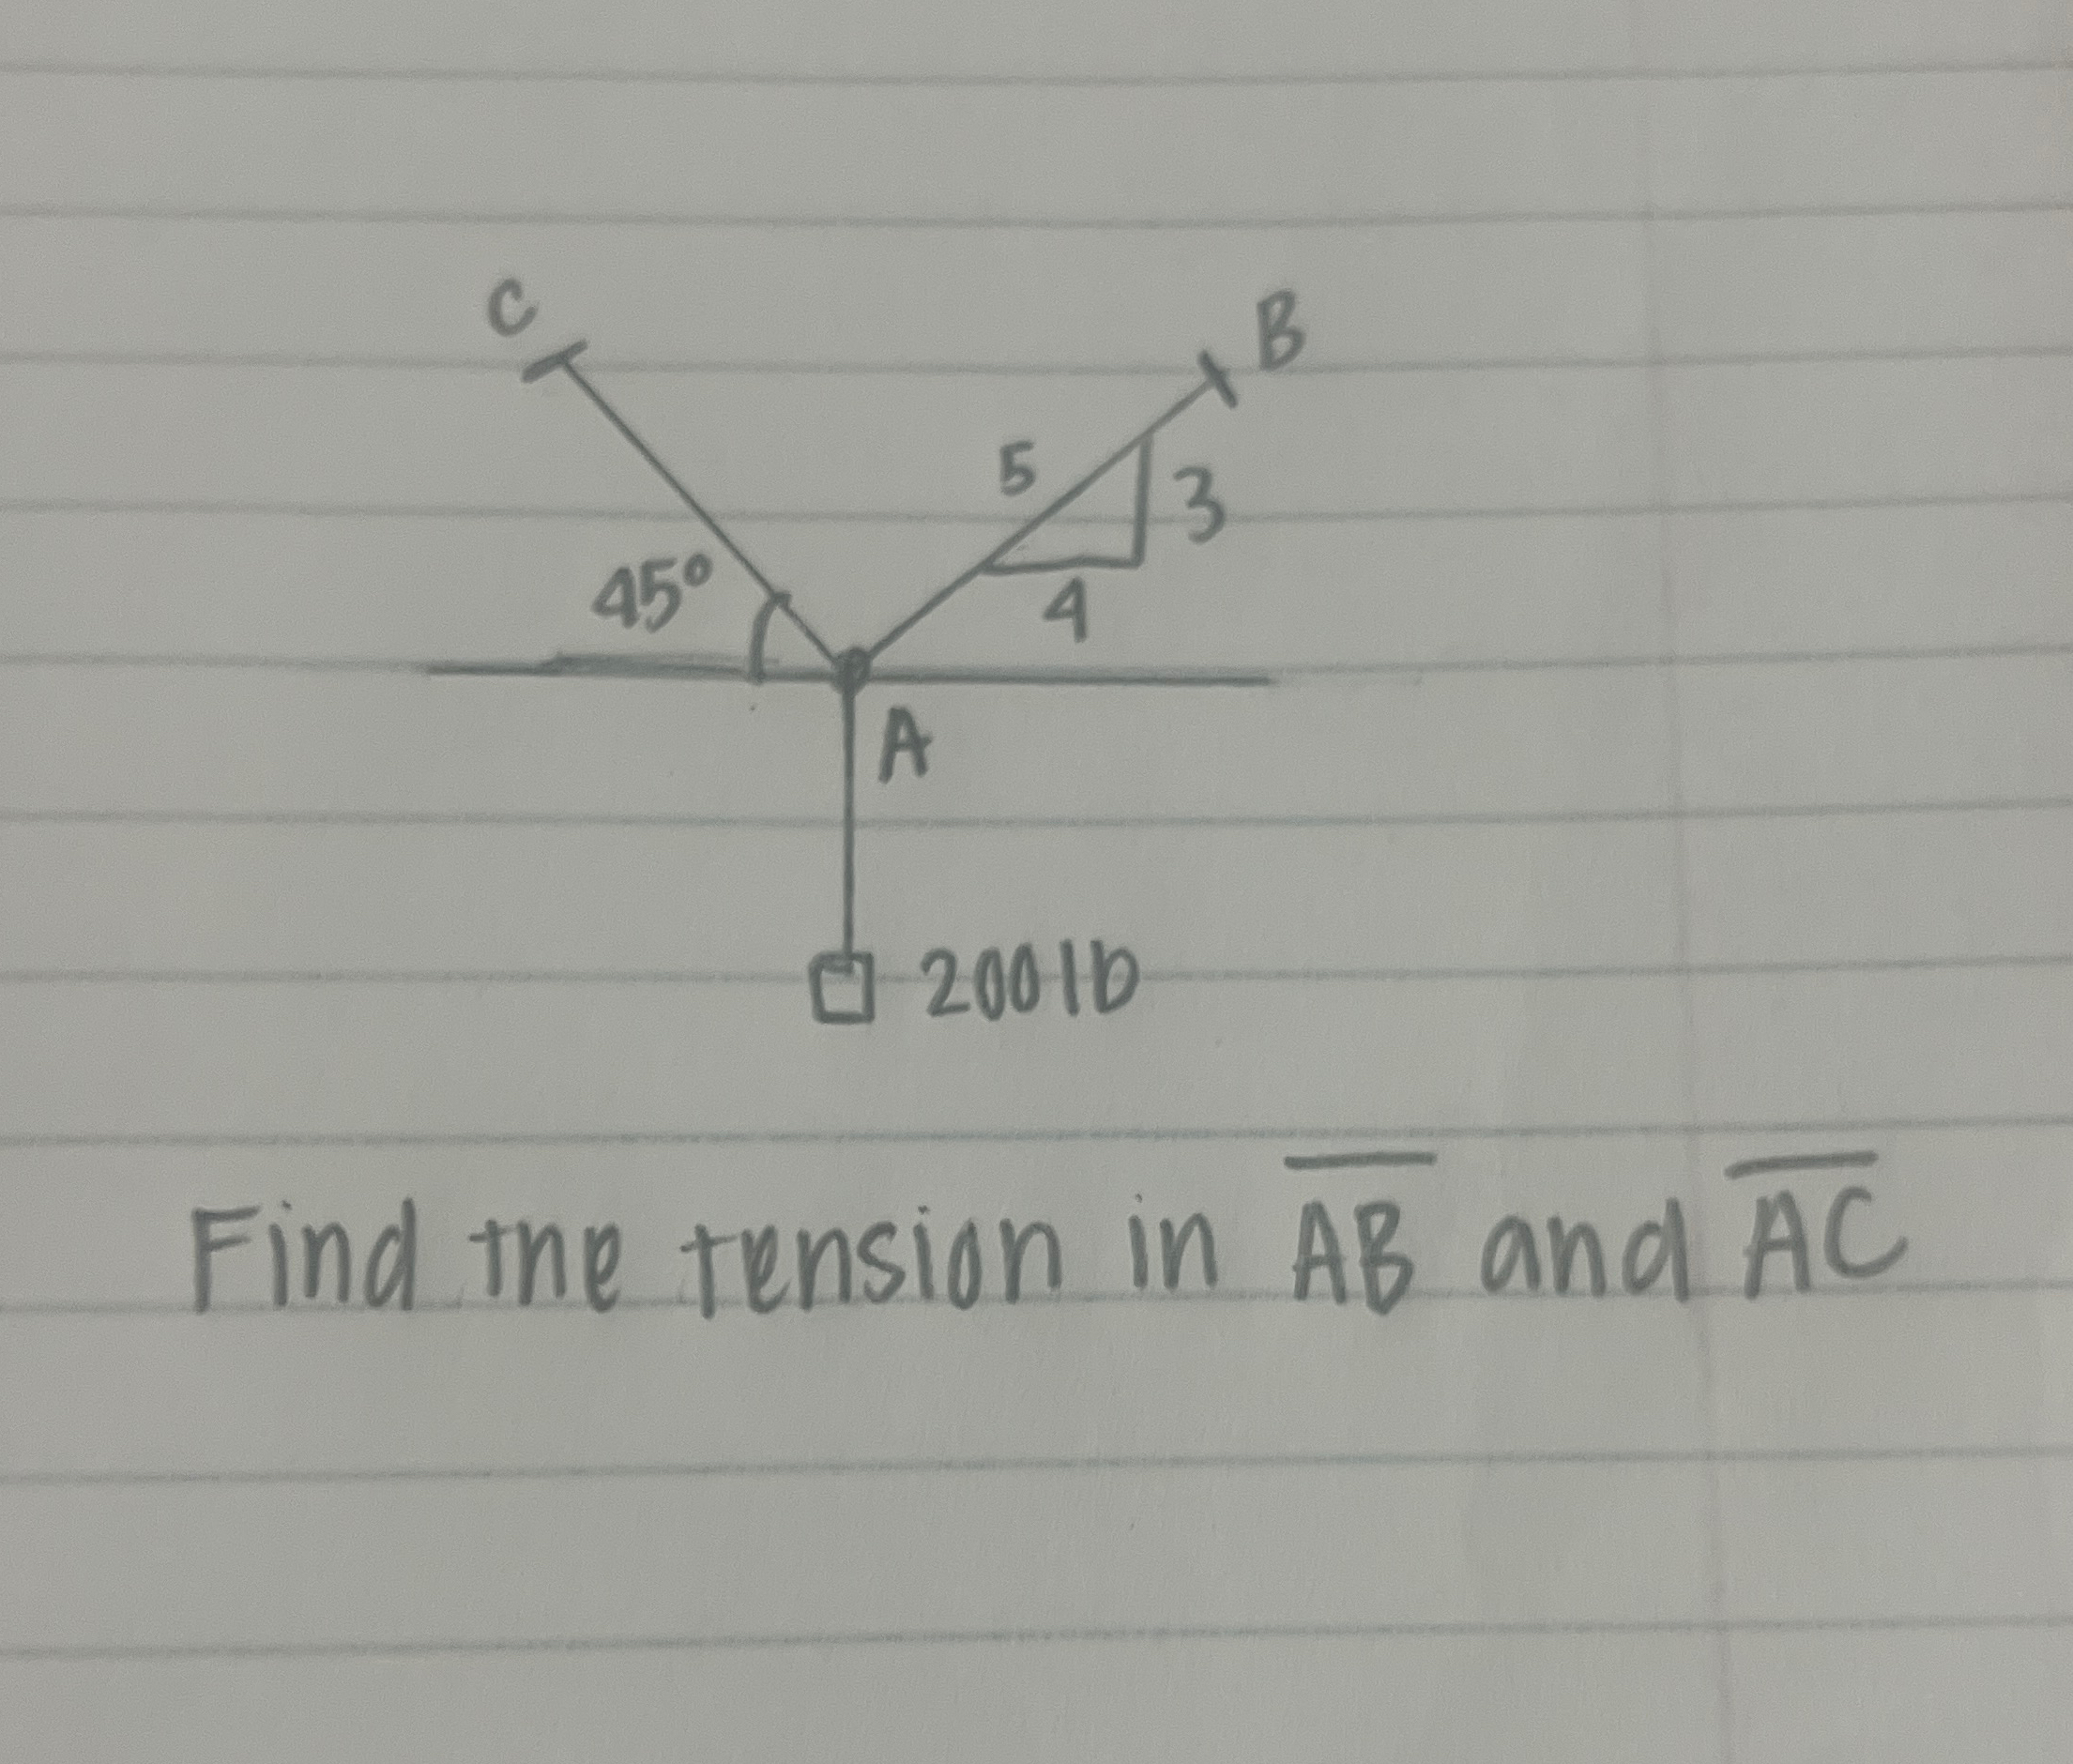 C
B
5
3
45°
4
A
200 lb
Find the tension in A̅B̅ and A̅C̅